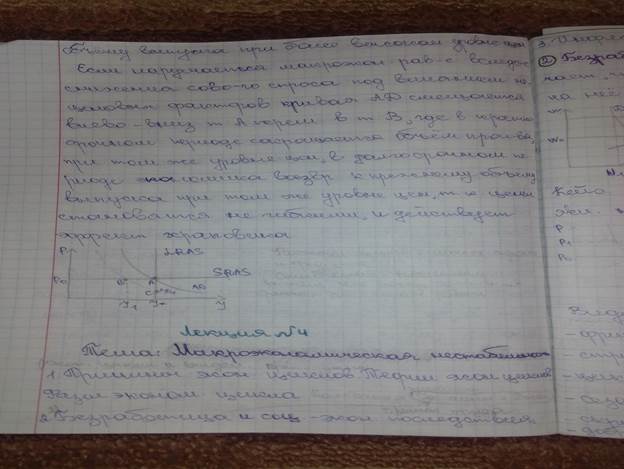 объему выпуска при более высоком уровне цен
Если нарушается макроэкон рав-е вследс
снижения сово-го спроса под влиянием не
ценовых факторов кривая AD смещается
влево-вниз т А перем в т В, где в кратко
срочном периоде сокращается объем произ-ва,
при том же уровне цен, в долгосрочном пе
риоде экономика возвр к прежнему объему
выпуска при том же уровне цен, т.к цены
становятся не гибкими, и действует
эффект храповика
P LRAS
P₀ B A SRAS
C AD
Y₁ Y* Y
Лекция №4
Тема: Макроэкономическая нестабильнос
1. Причины экон циклов. Теории экон циклов
Фазы эконом цикла
2. Безработица и соц-экон последствия
3.
② Безраб
на неё
W
P
P₁
P₀
Виды
- фрик
- стру
- цикл
- сезо